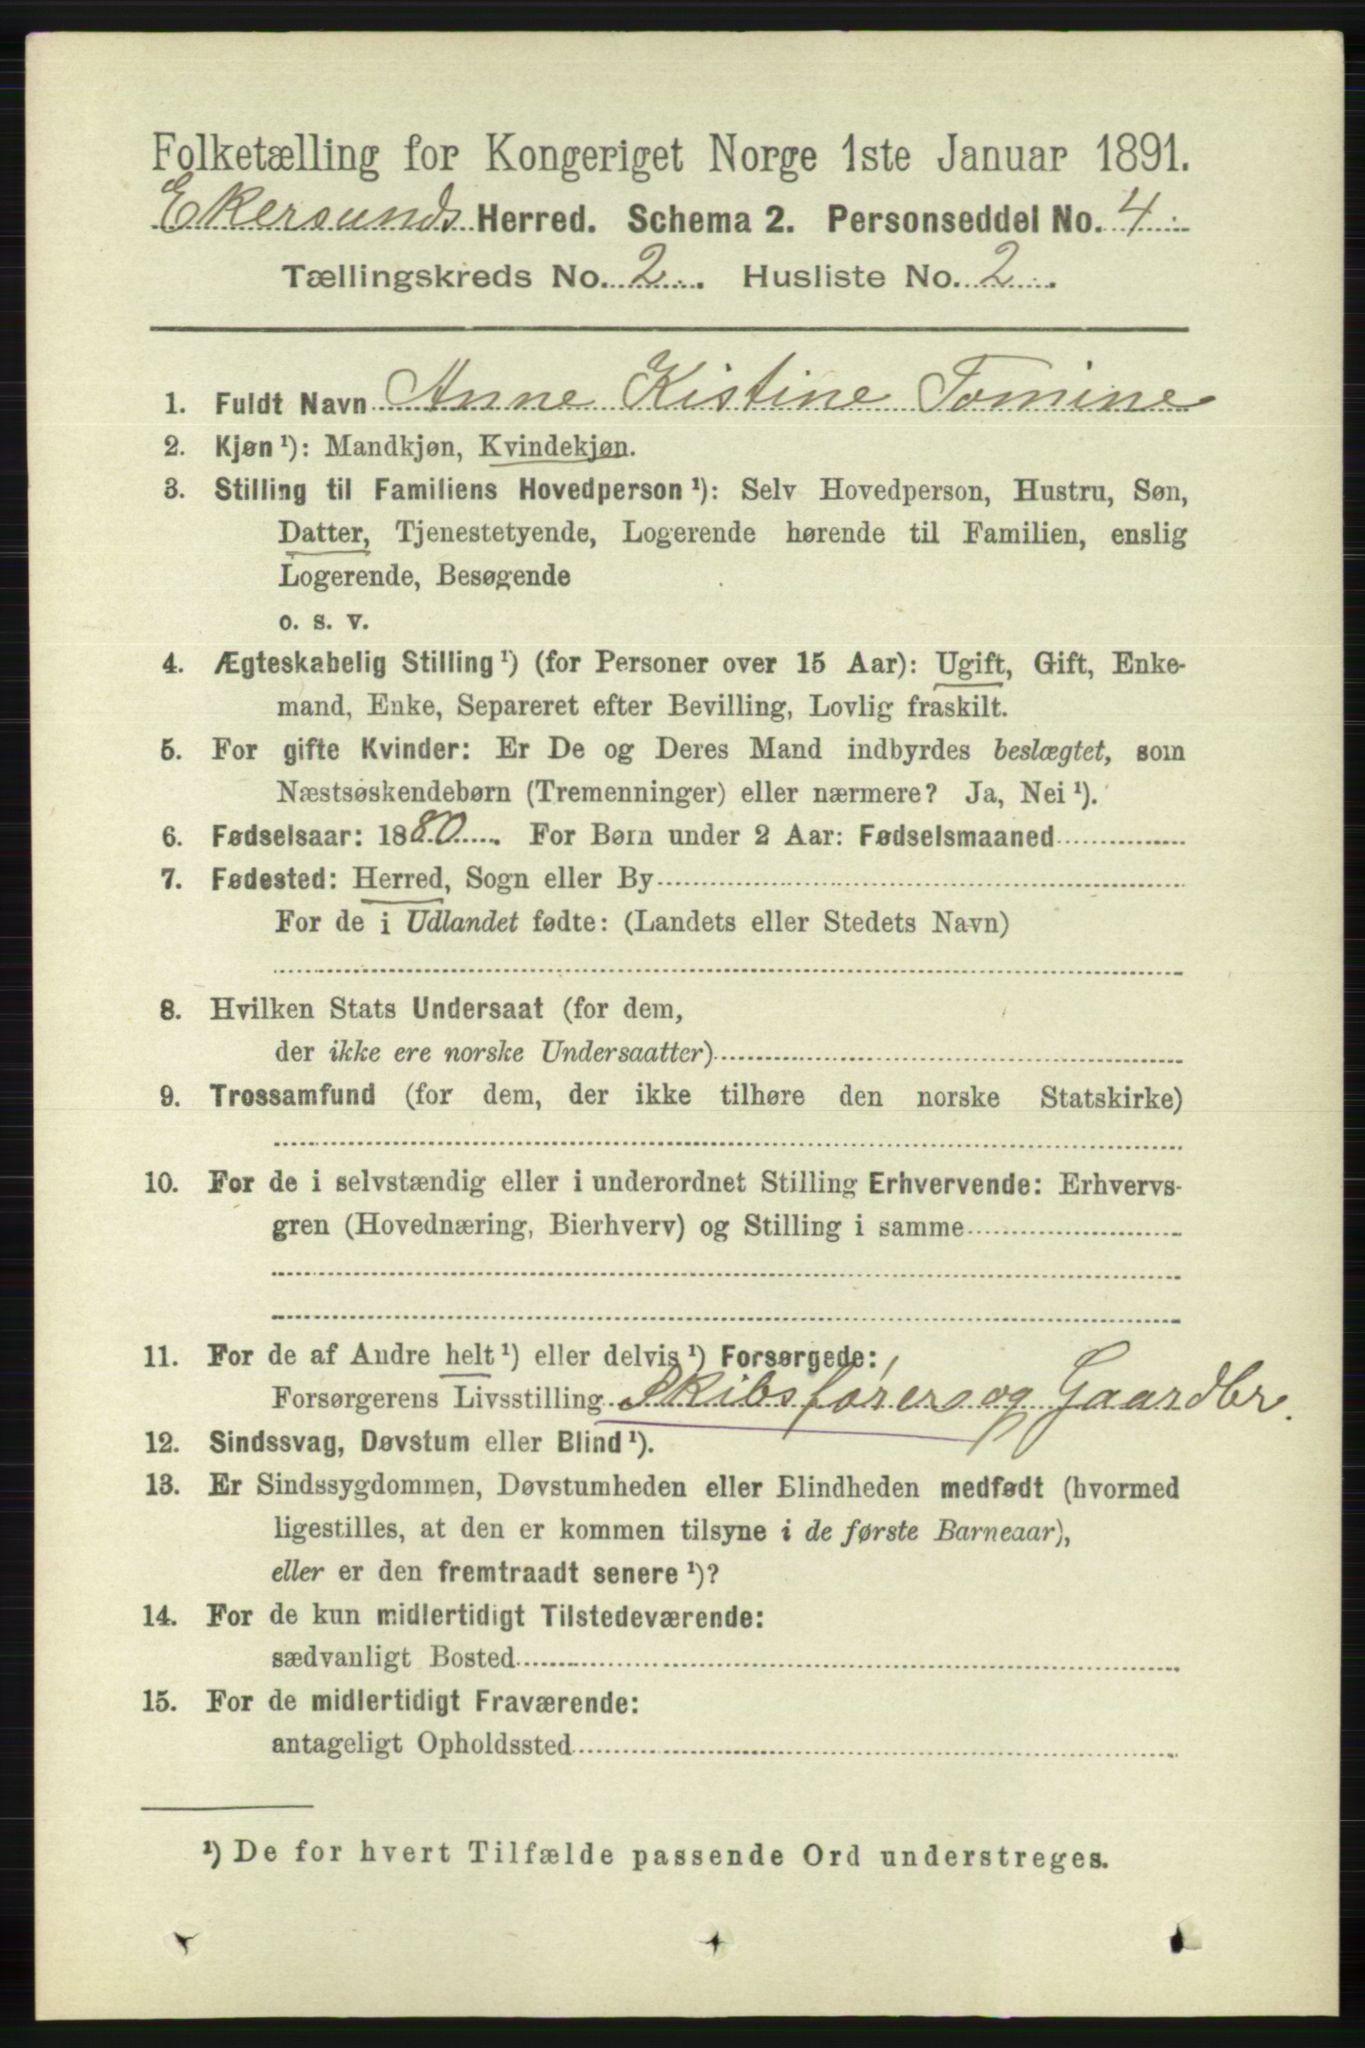 Folketælling for Kongeriget Norge 1ste Januar 1891.
Ekersunds Herred. Schema 2. Personseddel No. 4
Tællingskreds No. 2. Husliste No. 2.
1. Fuldt Navn Anne Kistine Tomine
2. Kjøn ¹): Mandkjøn, Kvindekjøn.
3. Stilling til Familiens Hovedperson ¹): Selv Hovedperson, Hustru, Søn,
Datter, Tjenestetyende, Logerende hørende til Familien, enslig
Logerende, Besøgende
o. s. v.
4. Ægteskabelig Stilling ¹) (for Personer over 15 Aar): Ugift, Gift, Enke-
mand, Enke, Separeret efter Bevilling, Lovlig fraskilt.
5. For gifte Kvinder: Er De og Deres Mand indbyrdes beslægtet, som
Næstsøskendebørn (Tremenninger) eller nærmere? Ja, Nei ¹).
6. Fødselsaar: 1880. For Børn under 2 Aar: Fødselsmaaned
7. Fødested: Herred, Sogn eller By
For de i Udlandet fødte: (Landets eller Stedets Navn)
8. Hvilken Stats Undersaat (for dem,
der ikke ere norske Undersaatter)
9. Trossamfund (for dem, der ikke tilhøre den norske Statskirke)
10. For de i selvstændig eller i underordnet Stilling Erhvervende: Erhvervs-
gren (Hovednæring, Bierhverv) og Stilling i samme
11. For de af Andre helt ¹) eller delvis ¹) Forsørgede:
Forsørgerens Livsstilling Skibsførers og Gaardbr.
12. Sindssvag, Døvstum eller Blind ¹).
13. Er Sindssygdommen, Døvstumheden eller Blindheden medfødt (hvormed
ligestilles, at den er kommen tilsyne i de første Barneaar),
eller er den fremtraadt senere ¹)?
14. For de kun midlertidigt Tilstedeværende:
sædvanligt Bosted
15. For de midlertidigt Fraværende:
antageligt Opholdssted
¹) De for hvert Tilfælde passende Ord understreges.